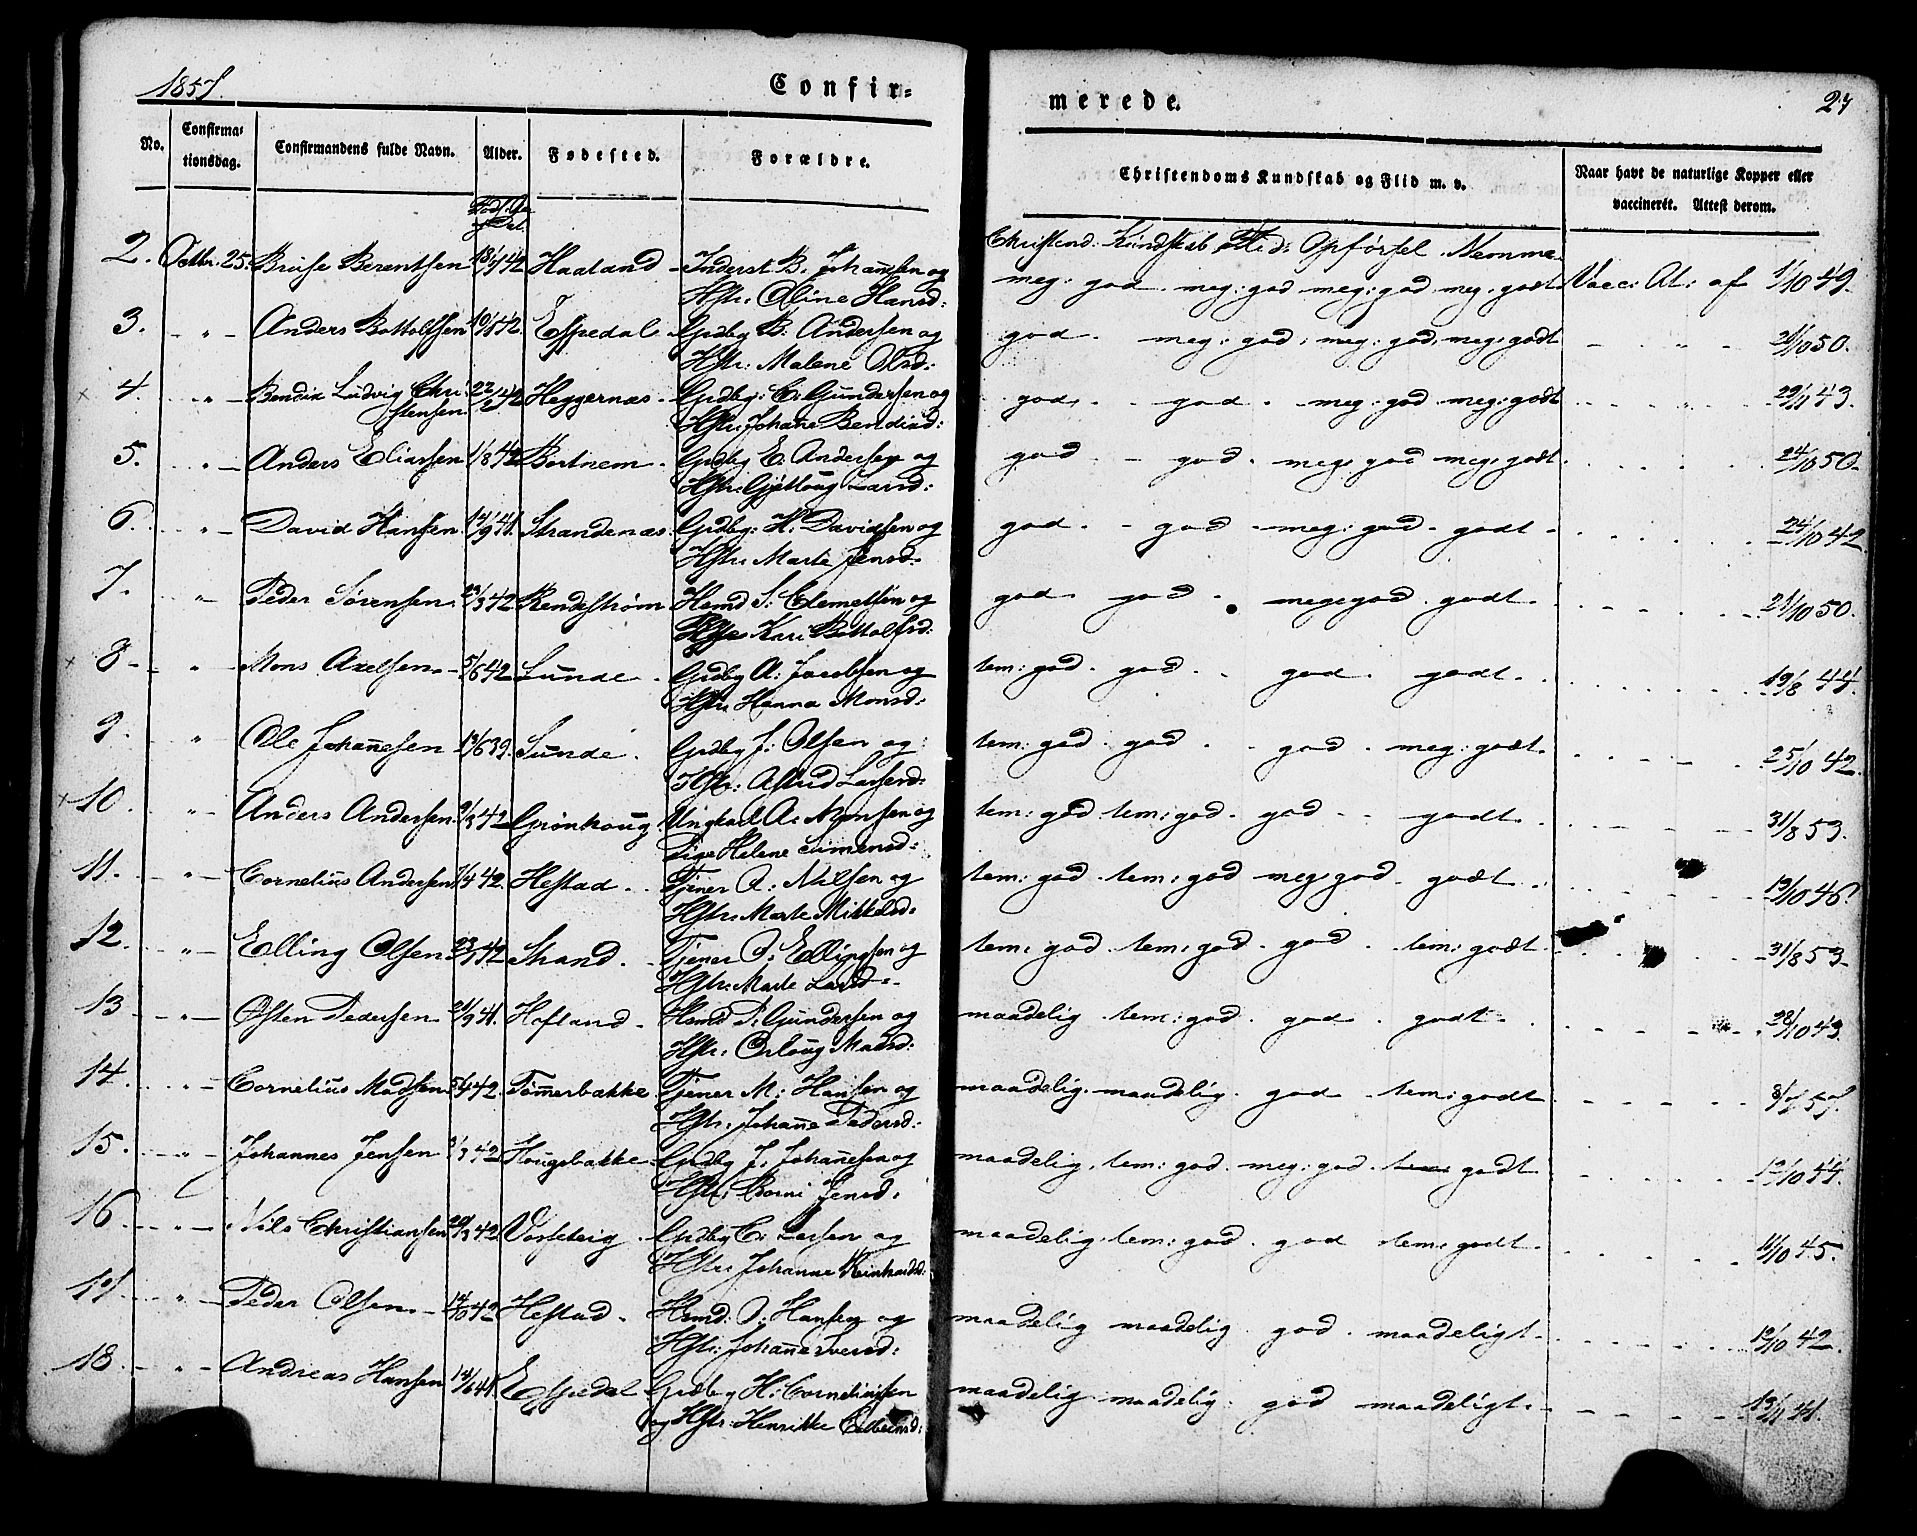 1857.
Confir=
merede.
27
No.
Confirma=
tionsdag.
Confirmandens fulde Navn.
Alder.
Fødested.
Forældre.
Christendoms Kundskab og Flid m. v.
Naar havt de naturlige Kopper eller
vaccineret. Attest derom.
Christend: Kundskab, Flid: Opførsel. Nemme.
2. Octbr. 25. Berentsen 42 Haaland Inderst B. Johannesen og meg: god. meg: god meg: god meg: godt Vacc: At: af 1/10 49.
Hstr: Oline Hansd:
3. - " - Anders Bottolfsen 42. Espedal. Grdbg B: Andersen og god. meg: god, meg: god, meg: godt - " - /10 50.
Hstr: Malene Olsd:
4. - " - Bendix Ludvig Chri 22/2 42 Heggernæs. Grdbg: C: Gundersen og god. - god. meg: god meg: godt 29/11 43.
stensen Hstr: Johanne Bendixd:
5. - " - Anders Eliassen 1/8 42 Bortnem. Grdbg E. Andersen og god - god. meg: god meg: godt. 24/10 50.
Hstr: Larsd:
6. - " - David Hansen 14/9 41. Strandenæs. Grdbg: H: Davidsen og god. - god - meg: god. godt - 24/10 42.
Hstr: Marte Jensd:
7. - " - Peder Sørensen. 23/3 42 Rendestrøm Hsmd S: Clemetsen og god god. meg: god. godt. 21/10 50.
Hstr Kari Bottolfsd:
8 - " - Mons Axelsen. - 5/6 42 Sunde. Grdbg A: Jacobsen og tem: god. god. . god. godt. 19/8 44.
Hstr Hanna Monsd:
9. - " Ole Johannesen 13/6 39. Sunde. Grdbg J: Olsen og tem: god. god. . god. meg: godt. 25/10 42.
Hstr: Astrid Larsd:
10. " - Anders Andersen 9/3 42 Grønhoug. Ungkarl A: Monsen og tem: god tem: god. god. - godt. 31/8 53.
Pige Helene Simensd:
11. - " - Cornelius Andersen 7/4 42. Hestad. Tjener A: Nilsen og tem: god. tem: god meg: god. godt. 19/10 46.
Hstr: Marte Mikkelsd:
12. - " - Elling Olsen 42 Strand. Tjener O: Ellingsen og tem: god. tem: god. god. tem: godt. 31/8 53.
Hstr: Marte Larsd:
13 - " - Østen Pedersen 21/9 41. Hofland. Hsmd P: Gundersen og maadelig tem: god. god. godt. 28/10 43.
Hstr: Madsd:
14. - " - Cornelius Madsen 5/4 42. Tømmerbakke Tjener M: Hansen og maadelig. maadelig. god tem: godt 8/7 57.
Hstr: Johanne Pedersd:
15. - " - Johannes Jensen 3/3 42 Hougsbakke. Grdbg J: Johannesen og maadelig. tem: god. meg: god. godt 19/10 44.
Hstr: Jensd:
16 - " - Nils Christiansen 20/3 42. Grdbg C: Larsen og maadelig. tem: god. god tem: godt. 11/10 45.
Hstr Johanne Reinhardsd:
17 - " - Peder Olsen. - 14/10 42 Hestad. Hsmd: O: Hansen og maadelig maadelig. god. maadeligt. 19/10 42.
Hstr: Johanne
18. - " - Andreas Hansen 12/6 41. Espedal Grdbg H: Corneliussen maadelig. maadelig. god maadeligt. 19/11 41.
og Hstr: Henrikke